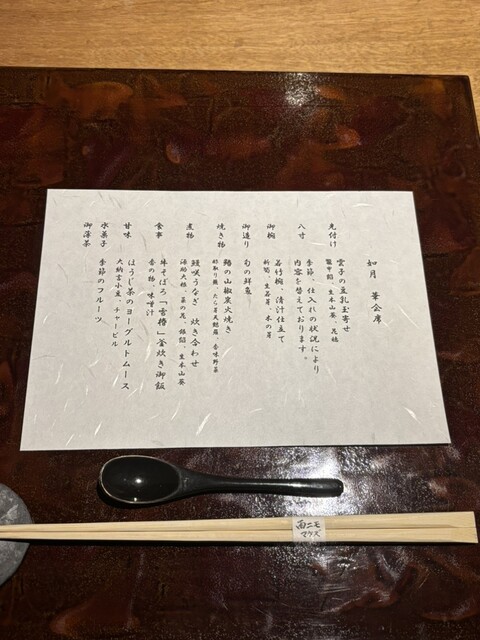 如月　華会席
先付け
雲子の豆乳玉寄せ
鼈甲餡、生本山葵、花穂
八寸
季節、仕入れの状況により
内容を替えております。
御椀
若竹椀、清汁仕立て
新筍、生若芽、木の芽
御造り
旬の鮮魚
焼き物
鰆の山椒炭火焼き
酢取り蓮、たらの芽天麩羅、香味野菜
煮物
鰻咲うなぎ　炊き合わせ
海老大根、菜の花、銀餡、生本山葵
食事
味そぼろ「雪椿」釜炊き御飯
香の物、味噌汁
甘味
ほうじ茶のヨーグルトムース
大納言小豆、チャービル
水菓子
季節のフルーツ
御薄茶